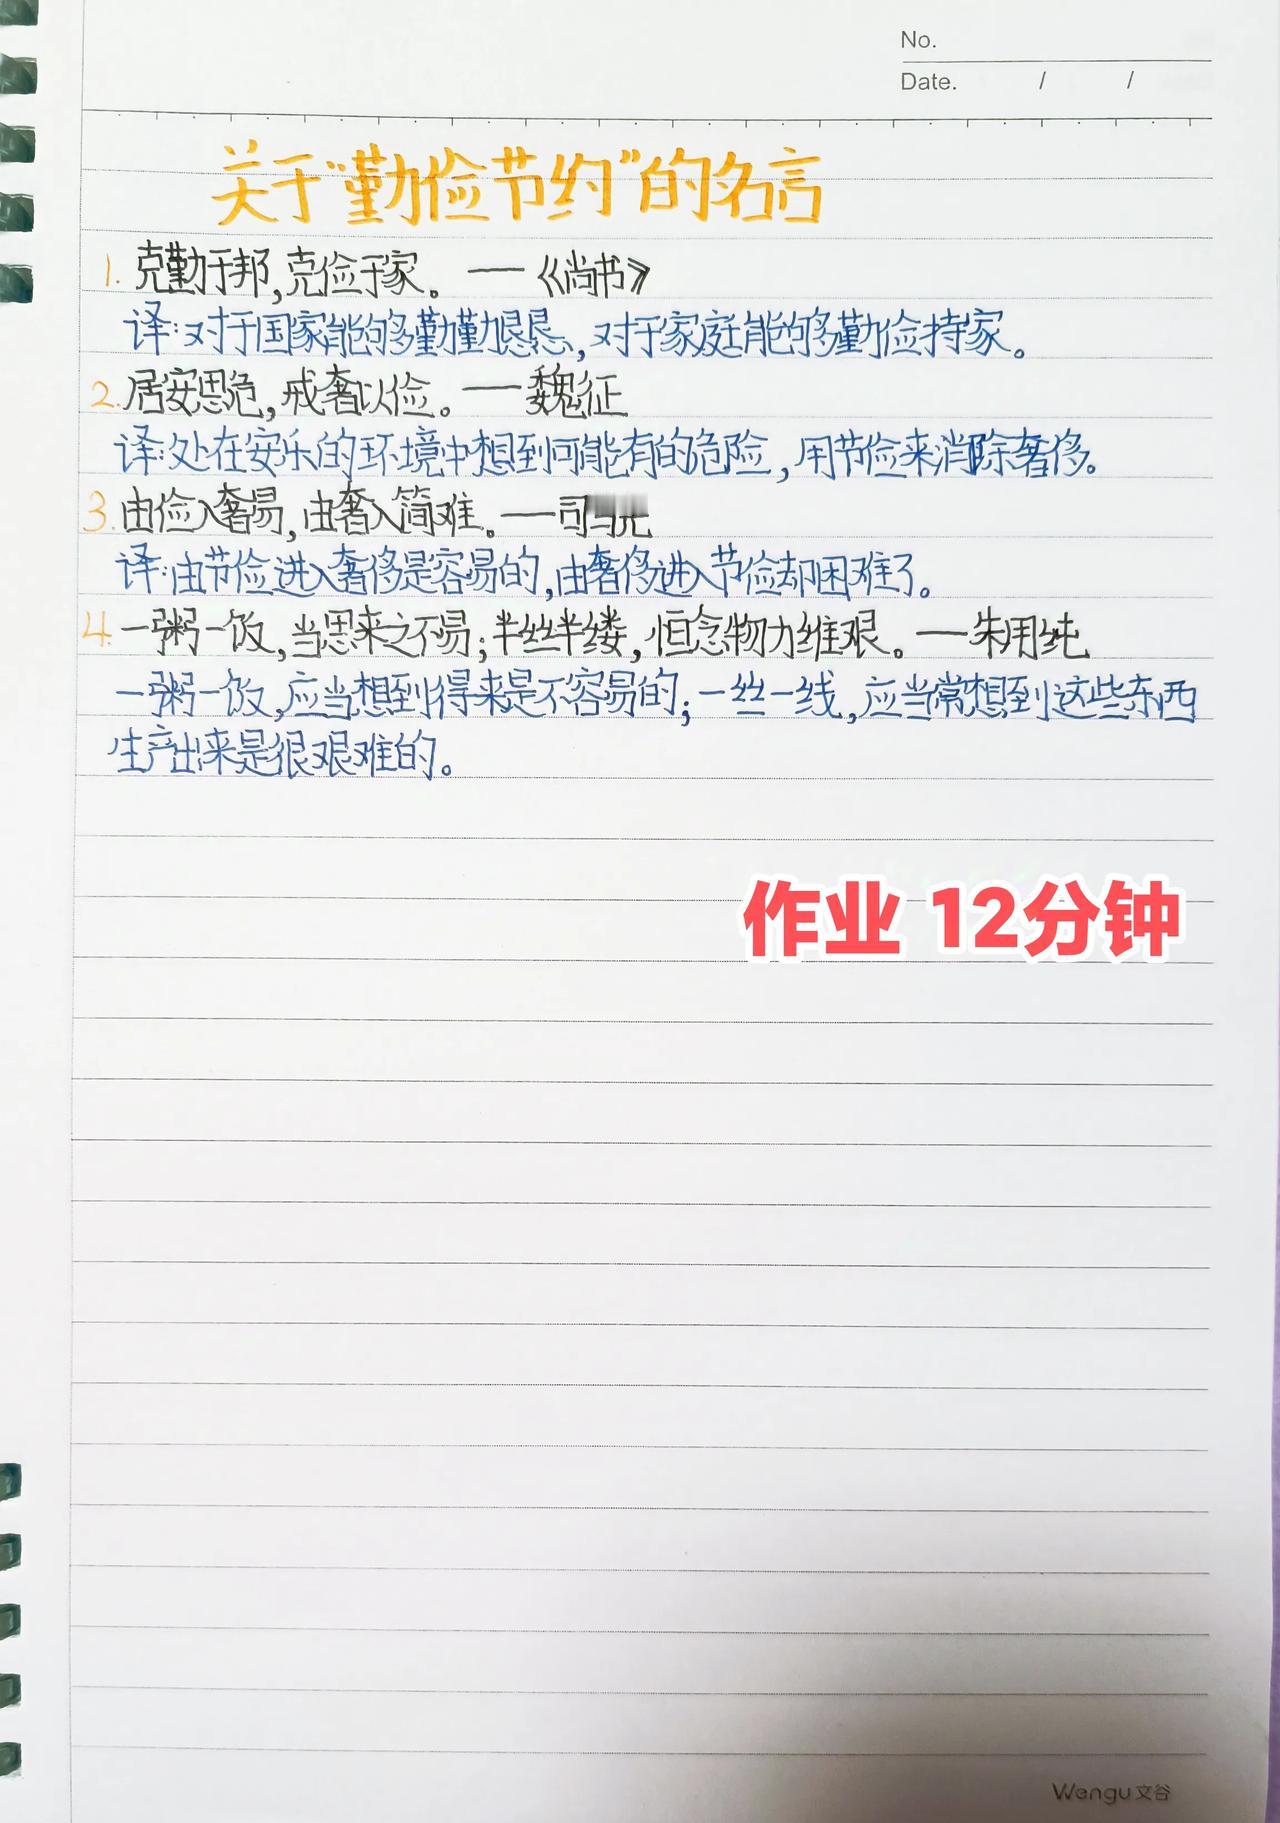 No.
Date. / /
关于“勤俭节约”的名言
1. 克勤于邦,克俭于家。——《尚书》
译:对于国家能够勤勤恳恳,对于家庭能够勤俭持家。
2. 居安思危,戒奢以俭。——魏征
译:处在安乐的环境中想到可能有的危险,用节俭来消除奢侈。
3. 由俭入奢易,由奢入简难。——司马光
译:由节俭进入奢侈是容易的,由奢侈进入节俭却困难了。
4. 一粥一饭,当思来之不易;半丝半缕,恒念物力维艰。——朱用纯
一粥一饭,应当想到得来是不容易的;一丝一线,应当常想到这些东西
生产出来是很艰难的。
作业 12分钟
Wengu文谷